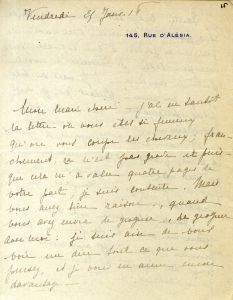 Vendredi 25 Janv. 18
145, RUE D'ALÉSIA.
J'ai
la lettre où vous êtes si furieux
qu'on vous coupe les cheveux: fran-
chement, ça n'est pas grave et puis-
que cela m'a valu quatre pages de
votre part, je suis contente. Mais
vous avez bien raison, quand
vous avez envie de grogner, de grogner
avec moi: je suis aise de vous
voir me dire tout ce que vous
pensez, et je vous en aime encore
davantage.